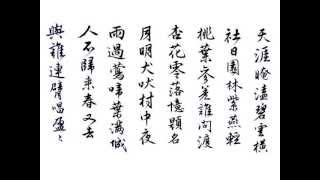 天涯晻溘碧雲橫
社日園林紫燕輕
桃葉參差誰問渡
杏花零落憶題名
月明犬吠村中夜
雨過鶯啼葉滿城
人不歸來春又去
與誰連臂唱盈〻